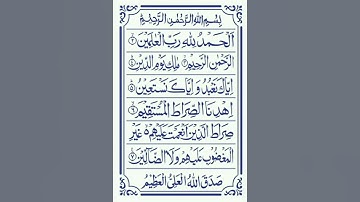 بِسْمِ اللهِ الرَّحْمٰنِ الرَّحِيْمِ
اَلْحَمْدُ لِلّٰهِ رَبِّ الْعٰلَمِيْنَ ۝۲
الرَّحْمٰنِ الرَّحِيْمِ ۝۳ مٰلِكِ يَوْمِ الدِّيْنِ ۝۴
اِيَّاكَ نَعْبُدُ وَ اِيَّاكَ نَسْتَعِيْنُ ۝۵
اِهْدِنَا الصِّرَاطَ الْمُسْتَقِيْمَ ۝۶
صِرَاطَ الَّذِيْنَ اَنْعَمْتَ عَلَيْهِمْ غَيْرِ
الْمَغْضُوْبِ عَلَيْهِمْ وَلَا الضَّآلِّيْنَ ۝۷
صَدَقَ اللهُ الْعَلِيُّ الْعَظِيْمُ